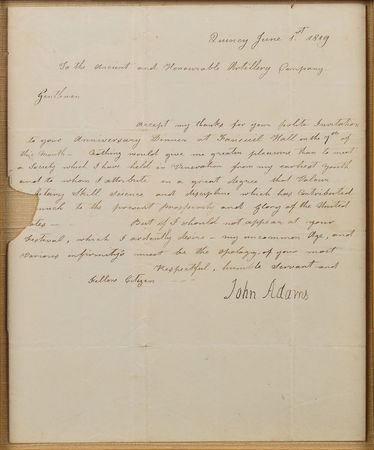 Quincy June 1.st 1819
To the Ancient and Honourable Artillery Company
Gentlemen
Accept my thanks for your polite Invitation
to your Anniversary Dinner at Faneuil Hall on the 7th of
this Month. Nothing would give me greater pleasure than to meet
a Society which I have held in Veneration from my earliest Youth
and to whom I attribute in a great degree that Valour
Military Skill science and discipline which has contributed
much to the present prosperity and glory of the United
But if I should not appear at your
Festival, which I ardently desire — my uncommon Age, and
various infirmity's must be the apology, of your most
Respectful, humble Servant and
Fellow Citizen
John Adams